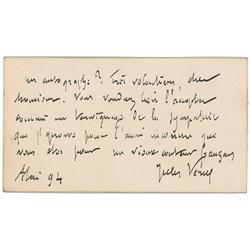 un autographe ? Très volontiers, cher
Monsieur. Vous voudrez bien l'accepter
comme un témoignage de la sympathie
que j'éprouve pour l'ami inconnu que
vous êtes pour un vieux conteur français
Jules Verne
Mai 94